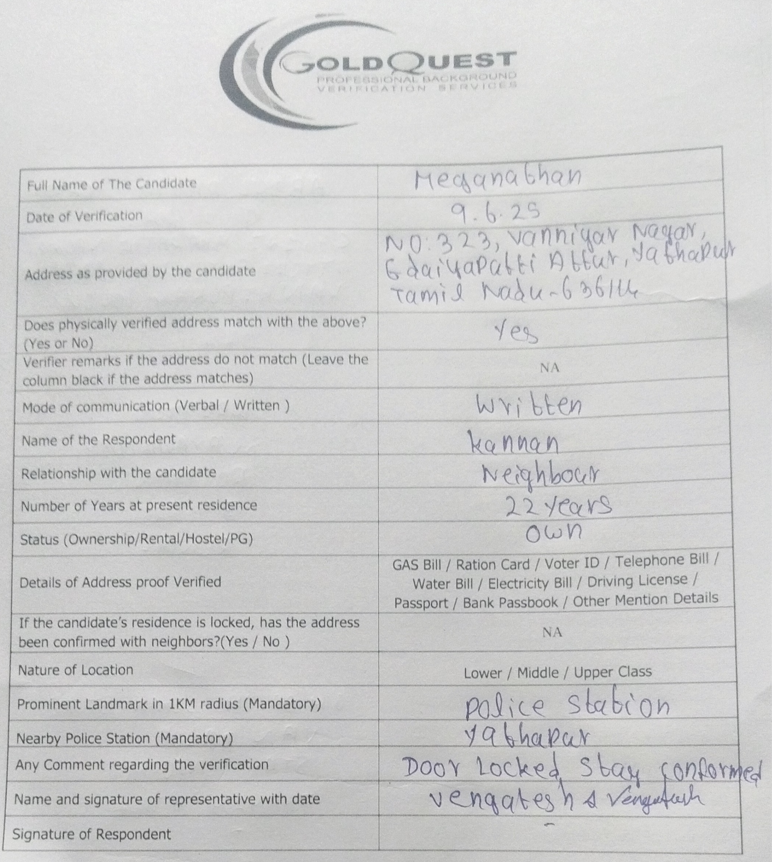 GOLDQUEST
PROFESSIONAL BACKGROUND
VERIFICATION SERVICES
Full Name of The Candidate Meganathan
Date of Verification 9.6.25
Address as provided by the candidate NO:323, Vanniyar Nagar,
Edaiyapatti Attur, Yathapur
Tamil Nadu-636114
Does physically verified address match with the above?
(Yes or No) Yes
Verifier remarks if the address do not match (Leave the
column black if the address matches) NA
Mode of communication (Verbal / Written ) Written
Name of the Respondent kannan
Relationship with the candidate Neighbour
Number of Years at present residence 22 years
Status (Ownership/Rental/Hostel/PG) Own
Details of Address proof Verified GAS Bill / Ration Card / Voter ID / Telephone Bill /
Water Bill / Electricity Bill / Driving License /
Passport / Bank Passbook / Other Mention Details
If the candidate's residence is locked, has the address
been confirmed with neighbors?(Yes / No ) NA
Nature of Location Lower / Middle / Upper Class
Prominent Landmark in 1KM radius (Mandatory) police station
Nearby Police Station (Mandatory) Yathapur
Any Comment regarding the verification Door Locked Stay conformed
Name and signature of representative with date Vengatesh & Vengatesh
Signature of Respondent -